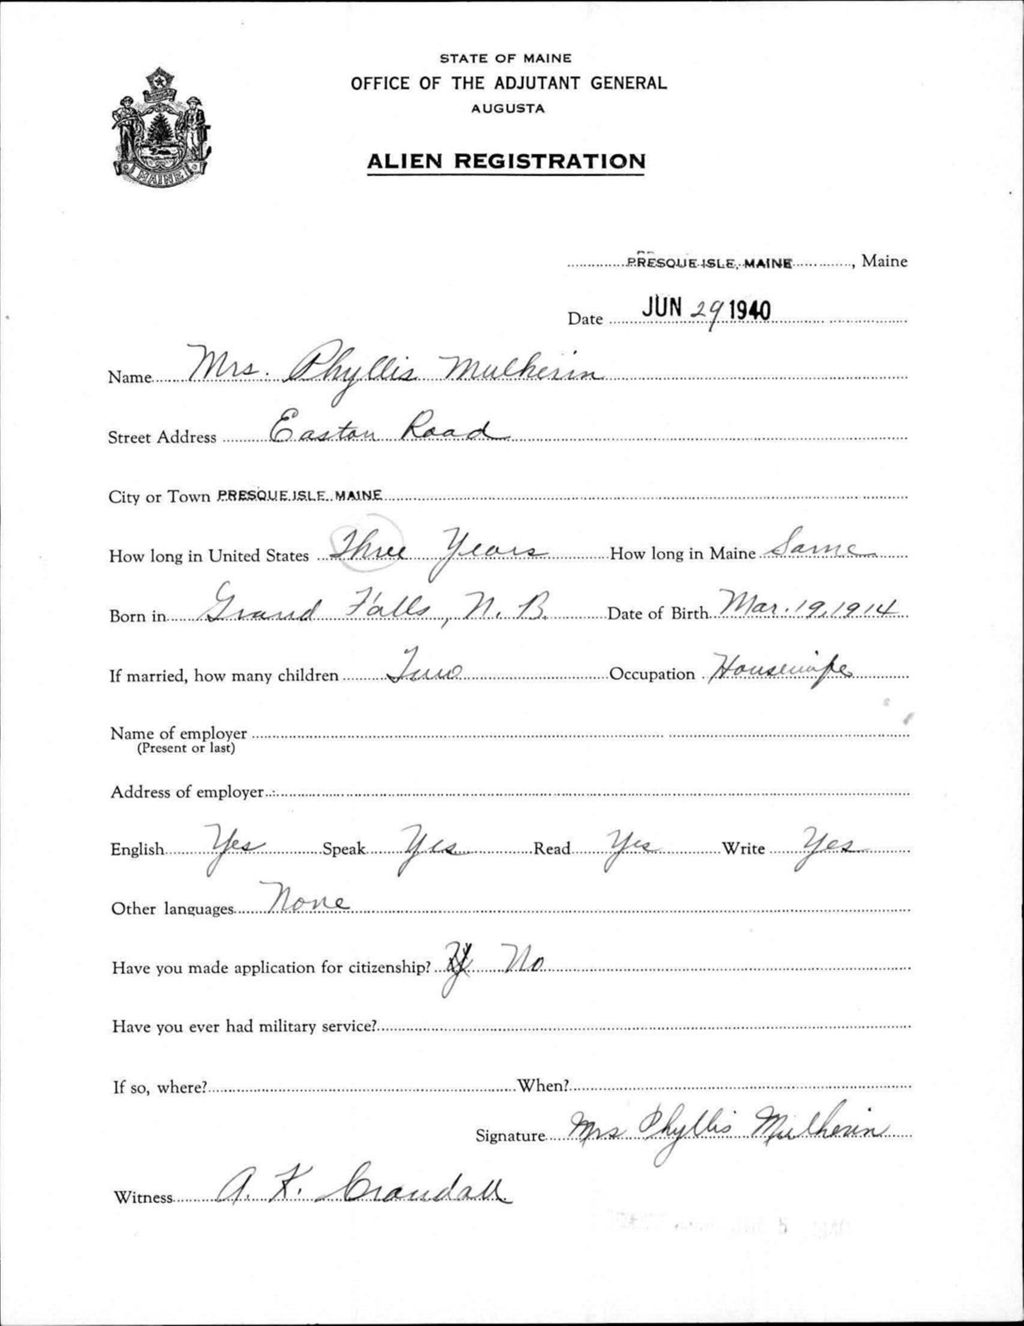 STATE OF MAINE
OFFICE OF THE ADJUTANT GENERAL
AUGUSTA
ALIEN REGISTRATION
MAINE
PRESQUE ISLE, MAINE, Maine
Date JUN 29 1940
Name Mrs. Phyllis Mulherin
Street Address Easton Road
City or Town PRESQUE ISLE, MAINE
How long in United States Three Years How long in Maine Same
Born in Grand Falls, N. B. Date of Birth Mar. 19, 1914
If married, how many children Two Occupation Housewife
Name of employer
(Present or last)
Address of employer
English Yes Speak Yes Read Yes Write Yes
Other languages None
Have you made application for citizenship? No
Have you ever had military service?
If so, where? When?
Signature Mrs Phyllis Mulherin
Witness A. K. Crandall